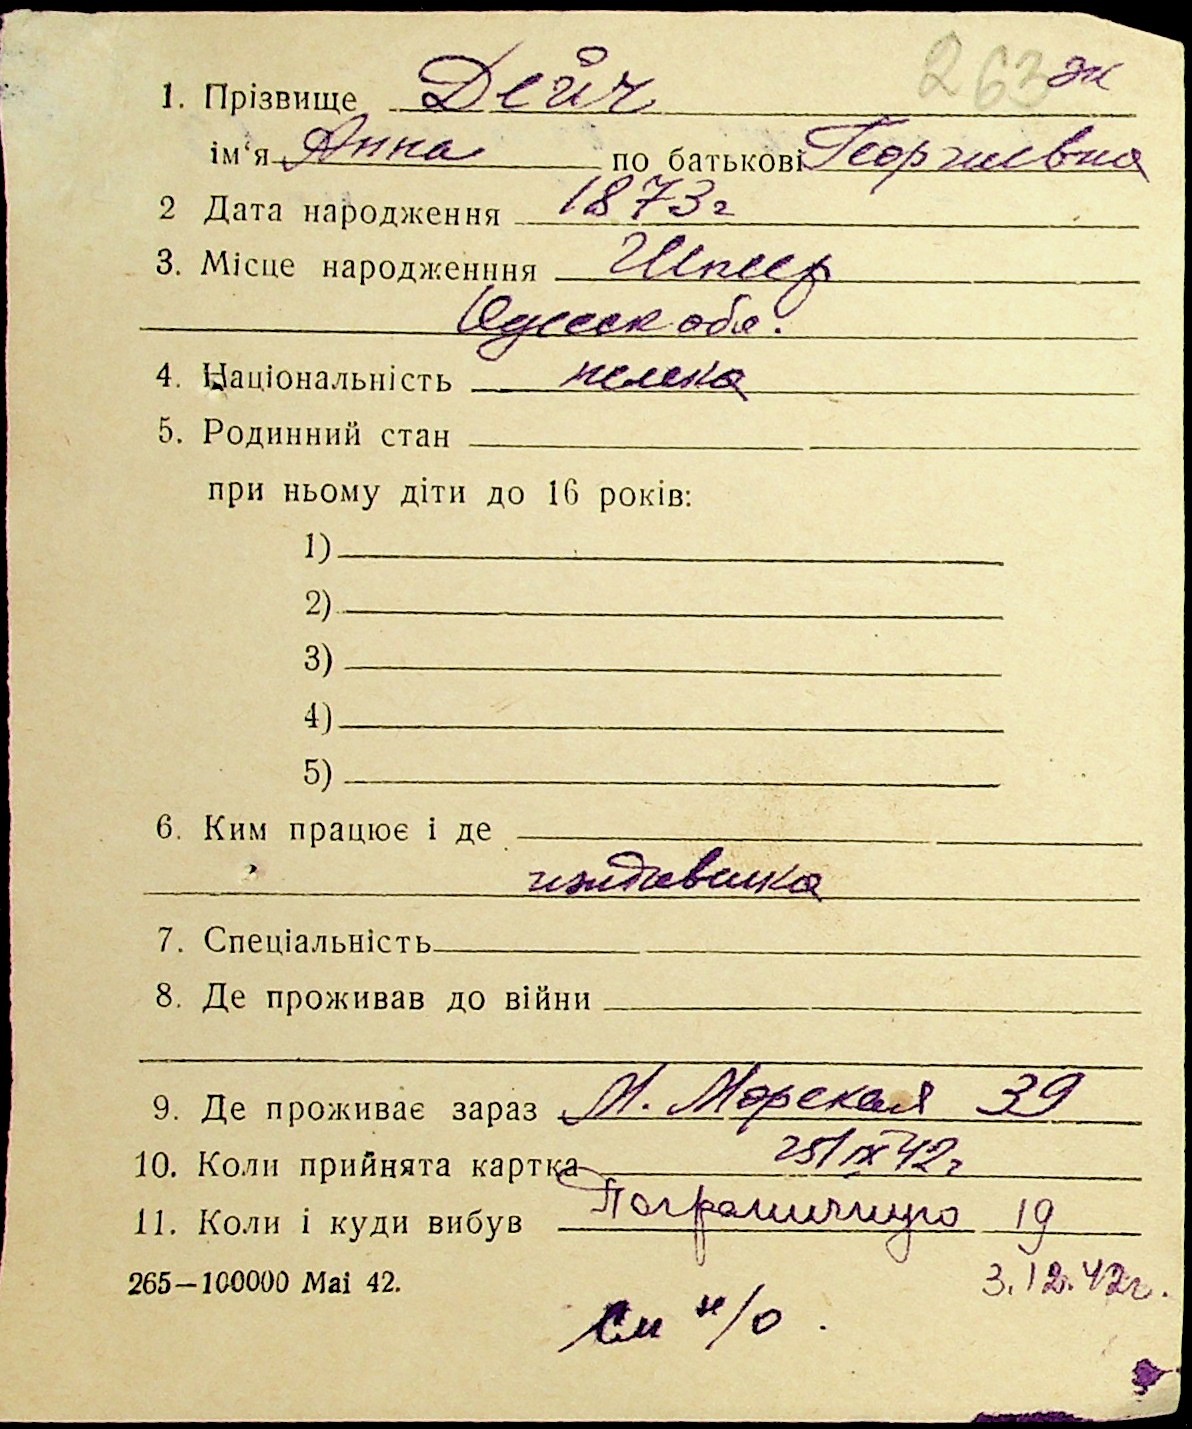 263 эк
1. Прізвище Дейч
ім‘я Анна по батькові Георгиевна
2 Дата народження 1873 г
3. Місце народженння Шпеер
Одесск обл.
4. Національність немка
5. Родинний стан
при ньому діти до 16 років:
1)
2)
3)
4)
5)
6. Ким працює і де
иждивенка
7. Спеціальність
8. Де проживав до війни
9. Де проживає зараз М. Морская 39
10. Коли прийнята картка 25/IX 42 г
11. Коли і куди вибув Пограничную 19
265—100000 Mai 42. 3.12.42г.
См н/о.